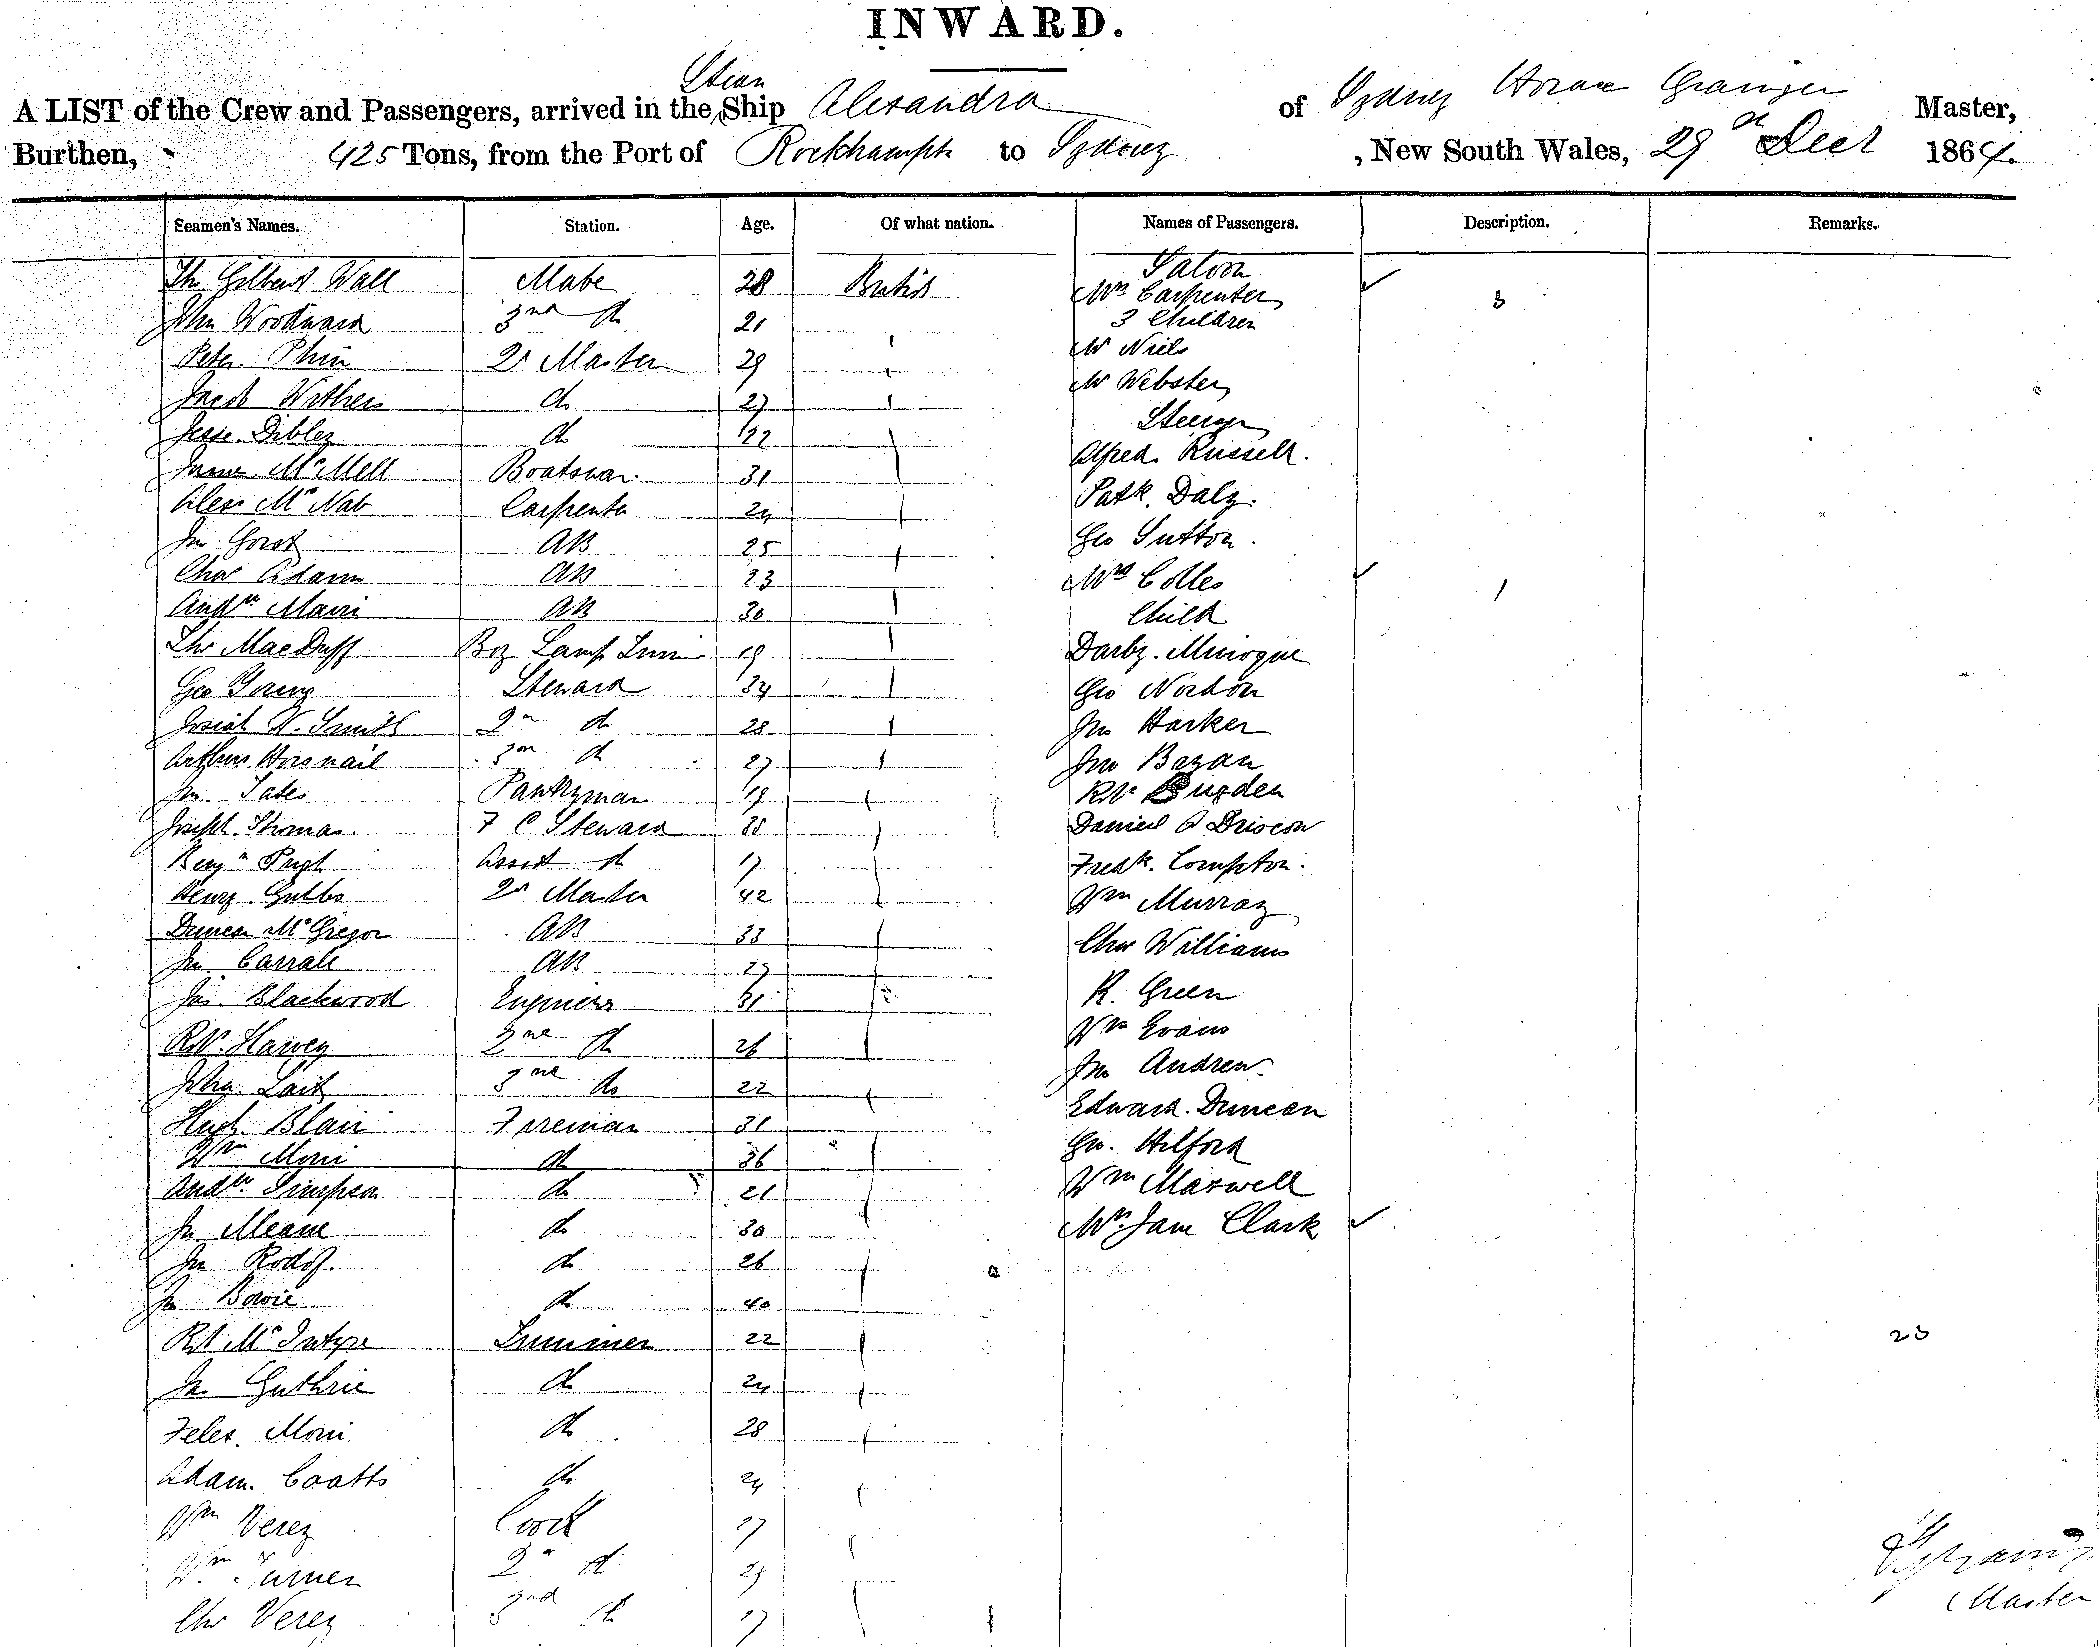 INWARD.
Steam
A LIST of the Crew and Passengers, arrived in the Ship Alexandra of Sydney Grainger Master,
Burthen, 425 Tons, from the Port of Rockhampt to Sydney , New South Wales, 29th Decr 1864.
Seamen's Names. Station. Age. Of what nation. Names of Passengers. Description. Remarks.
Saloon
Gilbert Wall Mate 28 British Mrs Carpenter 3
John Woodward 2nd do 21 3 Children
Peter 2r Master 29 Mr Niel
Jacob Withers do 27 Mr Webster
Steerage
Jesse Dibley do 22 Alfred Russell.
McMell Boatswan 31 Patk. Daly.
Alex McNab Carpenter 24 Geo Sutton.
Jn AB 25
Chas Adam AB 23 Mrs Colles 1
Andw Mair AB 30 Child
Thos MacDuff Boy Lamp Trim 19 Darby
Geo Young Steward 34 Geo Nordon
Josiah W. Smith 2n do 28 Jno Harker
Arthur Horsnail 3rd do 27 Jno Bazan
Jn Pantryman 19 Rt Bugden
Joseph Thomas F C Steward Daniel O Driscoll
Benjn Pugh Assist do 17 Fredk. Compton.
Henry Gibbs 2r Master 42 Wm Murray
Duncan McGregor AB 33 Chas Williams
Jn Carrall AB 29
Jas Blackwood Engineer 31 R. Green
Rt. Harvey 2nd do 26 Wm Evans
John 3rd do 22 Jno Andrew
Hugh Blair Fireman 31 Edward Duncan
Wm do 36 Geo. Hilford
Andw Simpson do 21 Wm Maxwell
Jn do 30 Mrs Jane Clark
Jn do 26
Jn Bowie do 40
Rt McIntyre Trimmer 22 23
Jn Guthrie do 24
do 28
Adam Coatts do 24
Wm Verey Cook 27
Wm Turner 2n do
Chas Verey 3rd do 17
Master